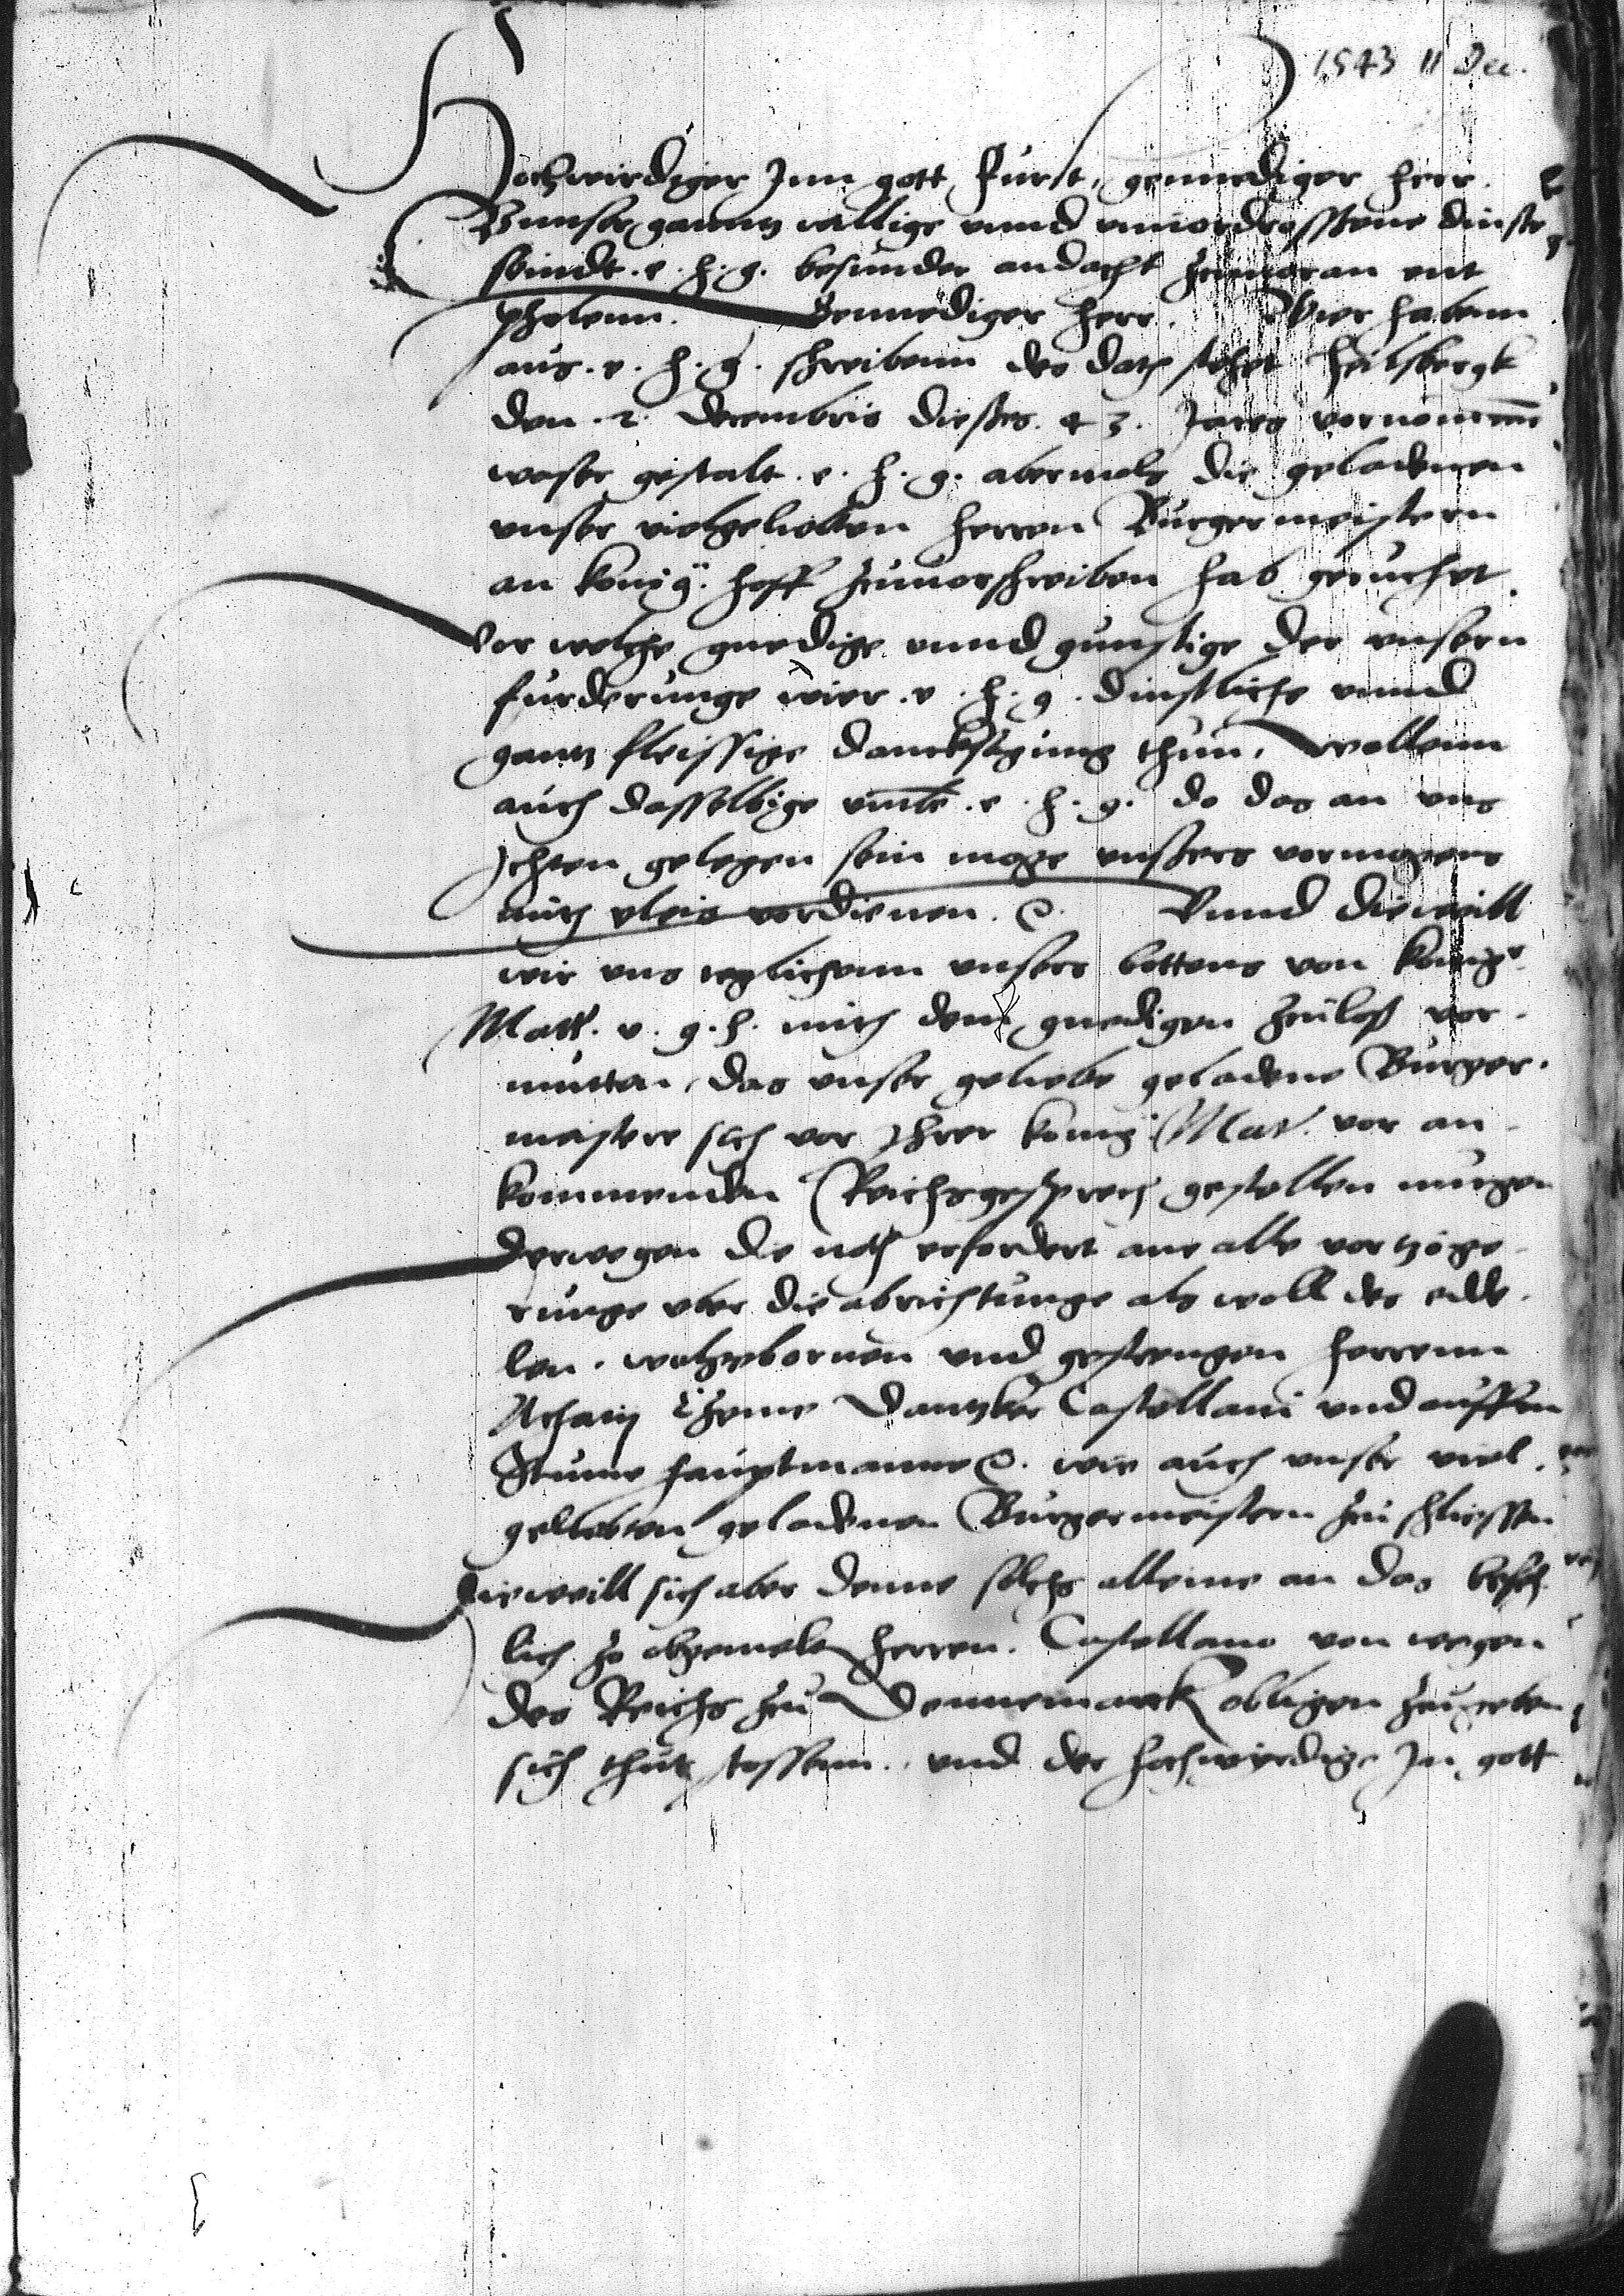 1543 11 Dec.
Hochwirdiger Inn gott Furst, gennediger herr.
Vnnser ganntz willige vnnd vnuordrossene dinste
seindt. e. h. g. besunder andacht zeuuoran ent
phelenn. Gennediger herr. Wier habenn
aus. e. h. g. schreibenn des dath stehet heilsbergk
den. 2. decembris dieses. 43. Jares vornommen
waser gestalt. e. h. g. abermols die geladenen
vnser vielgelibtten herren Burgermeistern
an konig. hoff zeuuorschreiben hab geruchet.
Vor welche gnedige vnnd gunstige der vnsern
furderunge wier. e. h. g. dinstliche vnnd
gantz fleissige dancksagung thun, wollenn
auch dasselbige vmb. e. h. g. do das an vns
Ichten gelegen sein moge vnsers vormogens
mith vleis vordienen. Vnnd dieweill
wir vns tzglichenn vnsers bittens von konig.
Matt. v. g. h. mith dem gnedigen zeulass vor-
mutten, das vnser geliebe geladene Burger-
meistere sich vor Ihrer konig Mat. vor an-
kommenden Reichsgesprech gestellen mugen
derwegen die noth erfordert ane alle vortzoge-
runge vber die abrichtunge als woll des edde-
len. wolgebornen vnd gestrengen herrenn
Achatz Czeme Dantzker Castellani vnd auffen
Stume hauptmanne. wie auch vnser viel-
geliebten geladenen Burgermeistern zeu schliessen
dieweill sich aber denne solchs alleine an das
lich so obgemelte herren. Castellano von wegen
des Reichs zeu Dennemarck obligen zeugeben
sich thutt stossenn. vnd der hochwirdige In gott